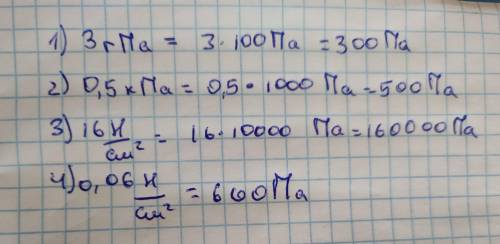 1) 3 гПа = 3·100Па = 300Па
2) 0,5 кПа = 0,5·1000 Па = 500Па
3) 16 Н/см² = 16·10000 Па = 160000Па
4) 0,06 Н/см² = 600Па